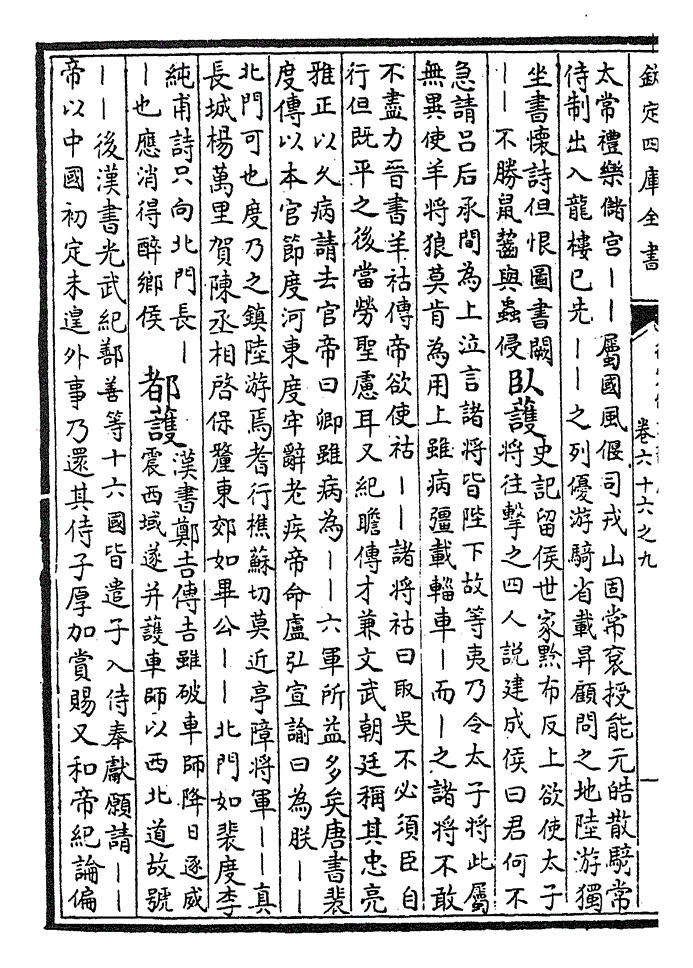 欽定四庫全書
卷六十六之九
一
太常禮樂儲宫丨丨屬國風偃司戎山固常袞授能元皓散騎常
侍制出入龍樓已先丨丨之列優游騎省載昇顧問之地陸游獨
坐書懷詩但恨圖書闕
丨丨不勝鼠齧與蟲侵
臥護
史記留侯世家黥布反上欲使太子
將往擊之四人說建成侯曰君何不
急請呂后承間為上泣言諸將皆陛下故等夷乃令太子將此屬
無異使羊將狼莫肯為用上雖病彊載輜車丨而丨之諸將不敢
不盡力晉書羊祜傳帝欲使祜丨丨諸將祜曰取吳不必須臣自
行但既平之後當勞聖慮耳又紀瞻傳才兼文武朝廷稱其忠亮
雅正以久病請去官帝曰卿雖病為丨丨六軍所益多矣唐書裴
度傳以本官節度河東度牢辭老疾帝命盧弘宣諭曰為朕丨丨
北門可也度乃之鎮陸游焉耆行樵蘇切莫近亭障將軍丨丨真
長城楊萬里賀陳丞相啓保釐東郊如畢公丨丨北門如裴度李
純甫詩只向北門長丨
丨也應消得醉鄉侯
都護
漢書鄭吉傳吉雖破車師降日逐威
震西域遂并護車師以西北道故號
丨丨後漢書光武紀鄯善等十六國皆遣子入侍奉獻願請丨丨
帝以中國初定未遑外事乃還其侍子厚加賞賜又和帝紀論偏